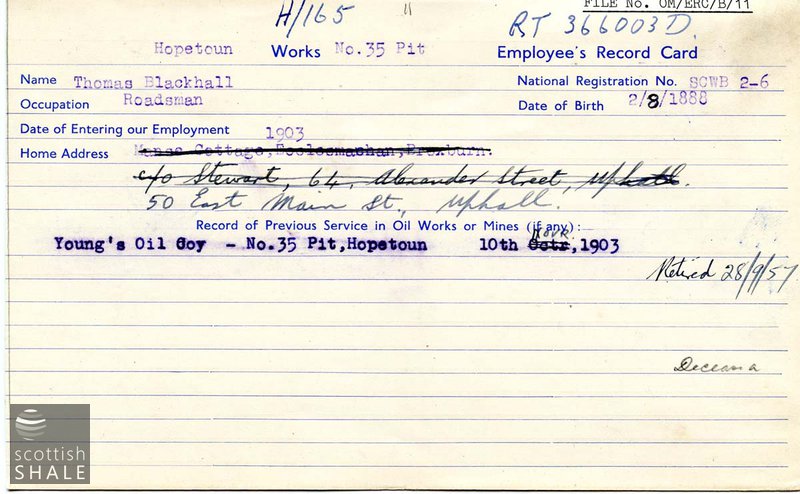 FILE No. OM/ERC/B/11
H/165 " RT 366003 D.
Hopetoun Works No.35 Pit Employee's Record Card
Name Thomas Blackhall National Registration No. SCWB 2-6
Occupation Roadsman Date of Birth 2/8/1888
Date of Entering our Employment 1903
Home Address Manse Cottage, Ecclesmachan, Broxburn.
c/o Stewart, 64, Alexander Street, Uphall.
50 East Main St., Uphall.
Record of Previous Service in Oil Works or Mines (if any):—
Novr.
Young's Oil Coy - No.35 Pit,Hopetoun 10th Octr,1903
Retired 28/9/57
Deceased
scottish
SHALE